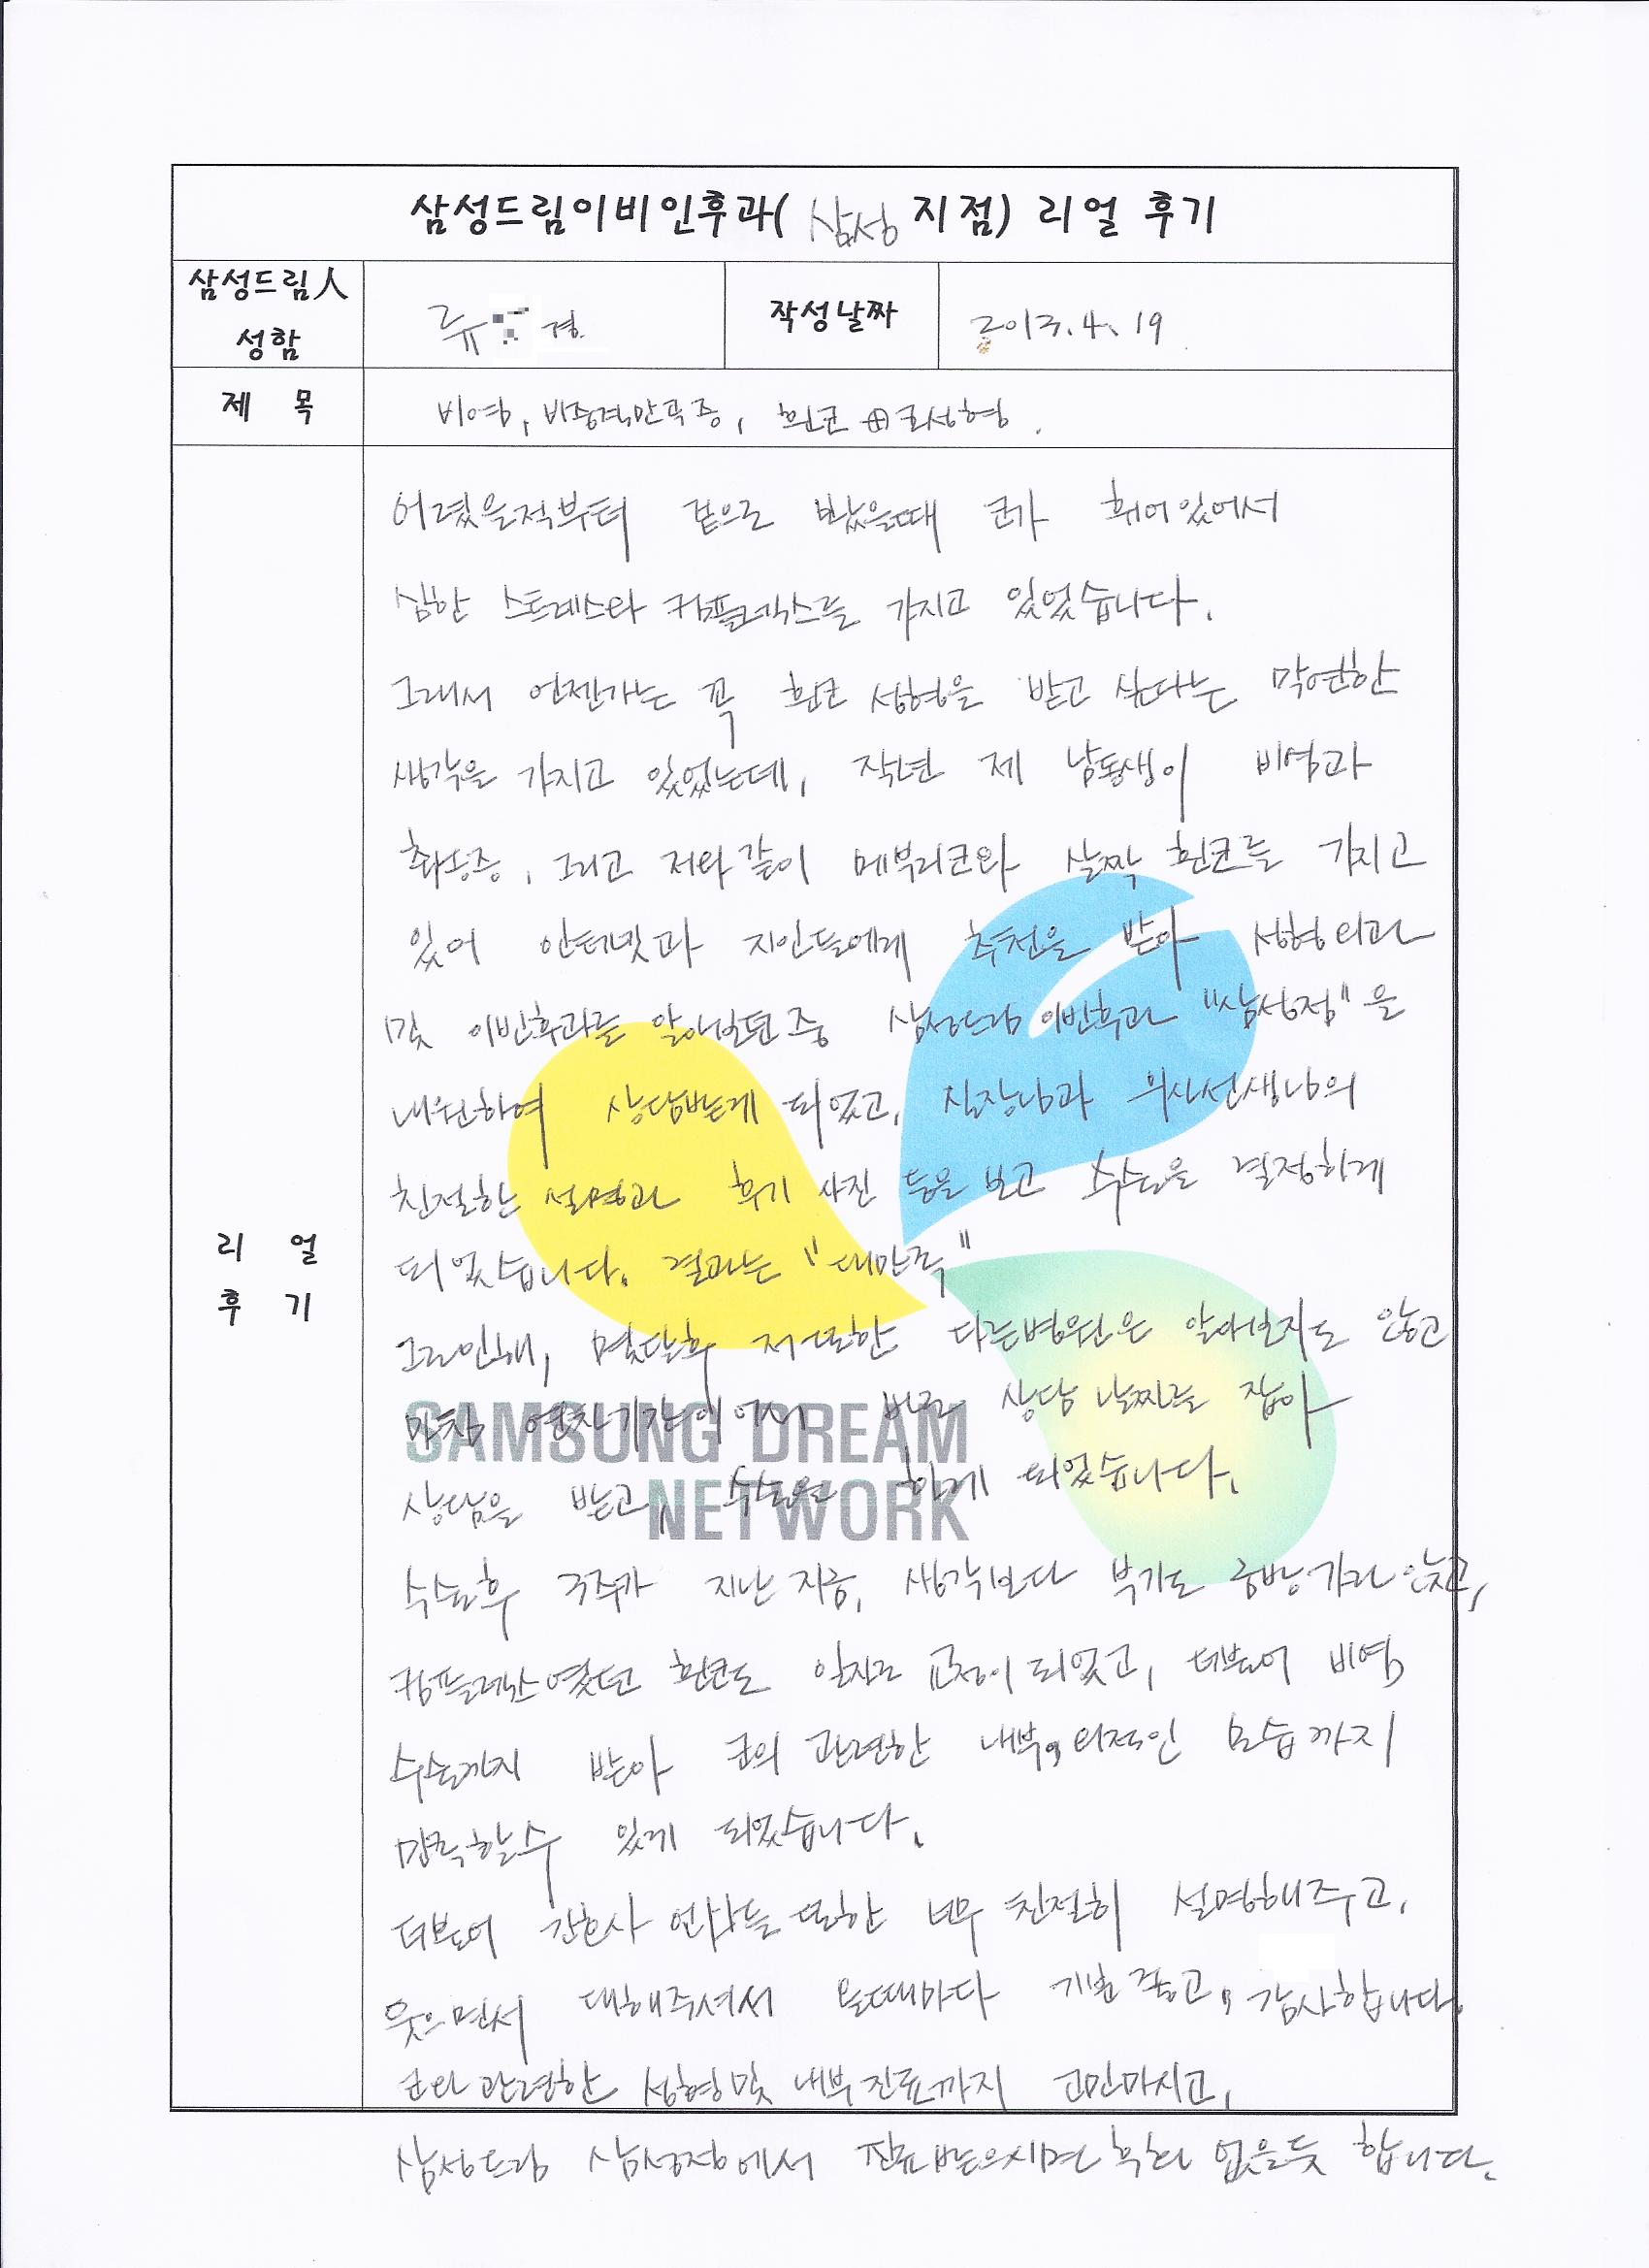 삼성드림이비인후과( 삼성 지점) 리얼 후기
삼성드림人 성함
류 경
작성날짜
2013. 4. 19
제 목
비염, 비중격만곡증, 휜코 코성형.
리 얼 후 기
어렸을적부터 겉으로 봤을때 코가 휘어있어서
심한 스트레스와 컴플렉스를 가지고 있었습니다.
그래서 언젠가는 꼭 휜코 성형을 받고 싶다는 막연한
생각을 가지고 있었는데, 작년 제 남동생이 비염과
축농증, 그리고 저와같이 메부리코와 살짝 휜코를 가지고
있어 인터넷과 지인들에게 추천을 받아 성형외과
및 이빈후과를 알아보던중 삼성드림 이빈후과 "삼성점"을
내원하여 상담받게 되었고, 실장님과 의사선생님의
친절한 설명과 후기 사진 등을 보고 수술을 결정하게
되었습니다. 결과는 "대만족"
그로인해, 몇달후 저또한 다른병원은 알아보지도 않고
마침 연차기간이어서 바로 상담 날짜를 잡아
상담을 받고, 수술을 하게 되었습니다.
수술후 3주가 지난 지금, 생각보다 붓기도 금방 가라 앉고,
컴플렉스였던 휜코도 일자로 교정이 되었고, 더불어 비염
수술까지 받아 코의 관련한 내부, 외적인 모습까지
만족할수 있게 되었습니다.
더불어 간호사 언니들 또한 너무 친절히 설명해주고,
웃으면서 대해주셔서 올때마다 기분 좋고, 감사합니다.
코와 관련한 성형및 내부 진료까지 고민마시고,
삼성드림 삼성점에서 진료받으시면 후회 없을듯 합니다.
SAMSUNG DREAM
NETWORK